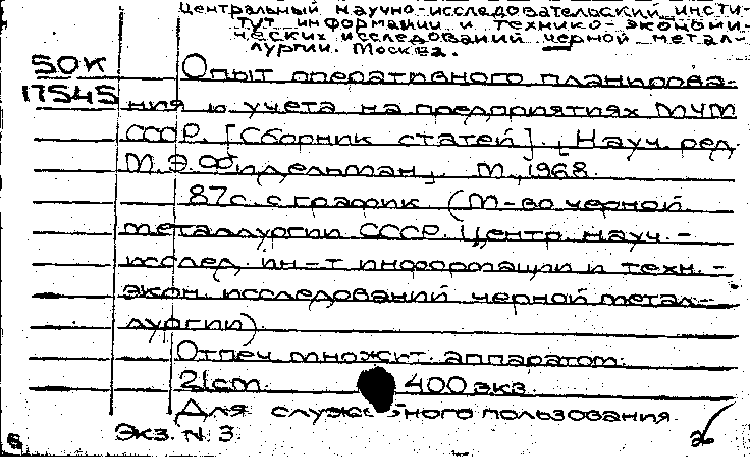 Центральный научно-исследовательский инсти-
тут информации и технико-экономи-
ческих исследований черной метал-
лургии. Москва.
50К
17545
Опыт оперативного планирова-
ния и учета на предприятиях МЧМ
СССР. [Сборник статей]. [Науч. ред.
М.Э. Фидельман]. М., 1968.
87с. с график (М-во черной
металлургии СССР. Центр. науч.-
исслед. ин-т информации и техн.-
экон. исследований черной метал-
лургии)
Отпеч. множит. аппаратом.
21cm. 400 экз.
Для служебного пользования.
Экз. N. 3.